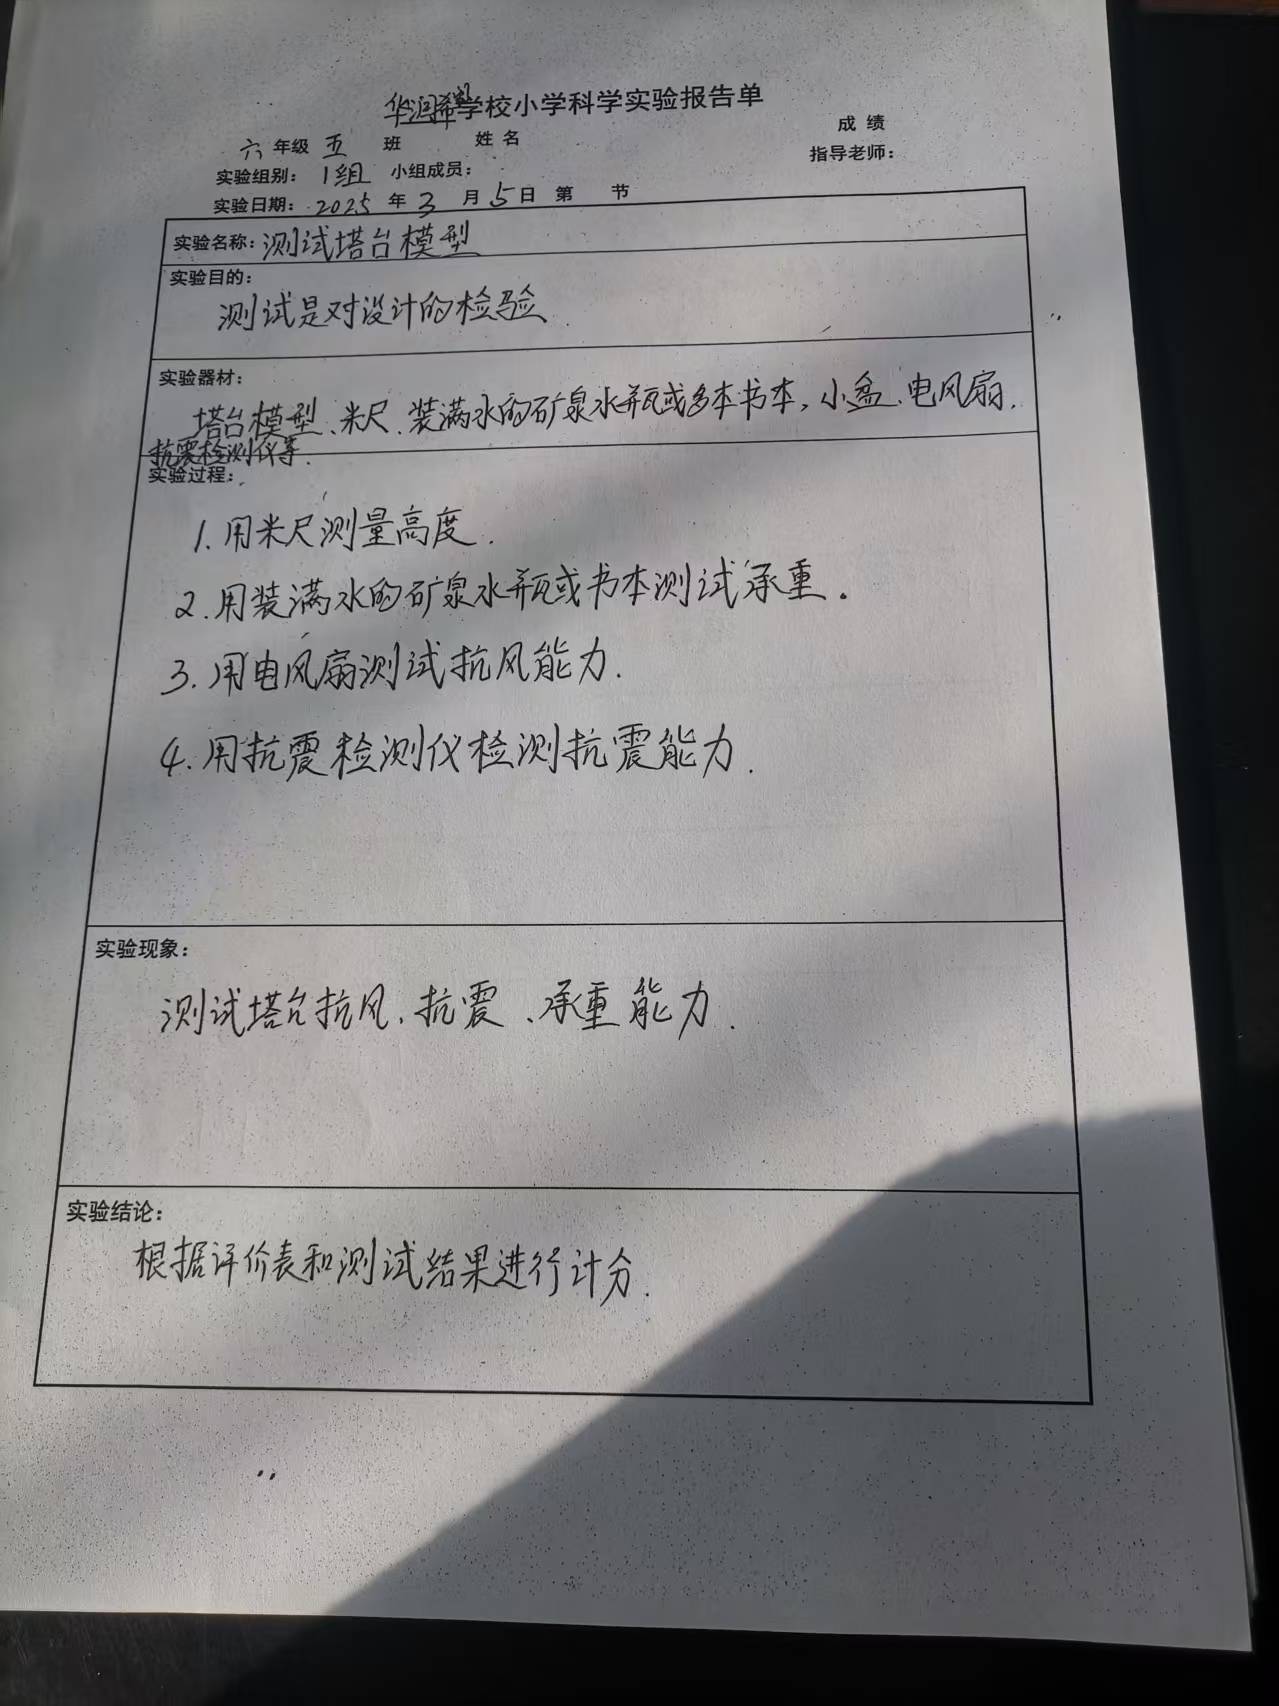 华润希望学校小学科学实验报告单
成绩
六年级 五 班 姓名
指导老师：
实验组别： 1组 小组成员：
实验日期： 2025 年 3 月 5 日 第 节
实验名称：测试塔台模型
实验目的：
测试是对设计的检验
实验器材：
塔台模型、米尺、装满水的矿泉水瓶或多本书本，小盆、电风扇、
抗震检测仪等.
实验过程：
1.用米尺测量高度.
2.用装满水的矿泉水瓶或书本测试承重.
3.用电风扇测试抗风能力.
4.用抗震检测仪检测抗震能力.
实验现象：
测试塔台抗风、抗震、承重能力.
实验结论：
根据评价表和测试结果进行计分.